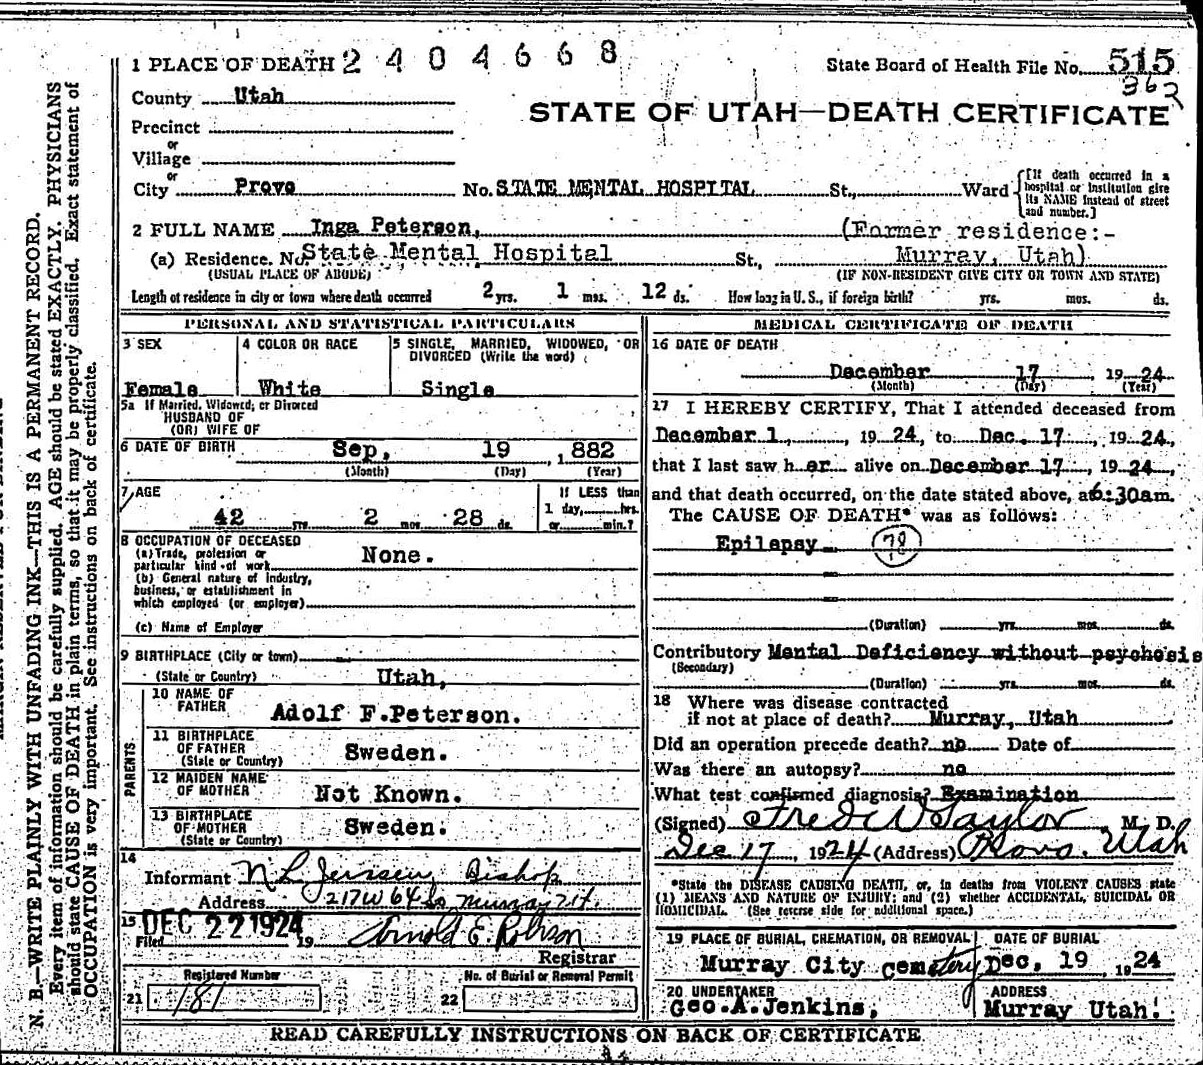 1 PLACE OF DEATH 2404668
State Board of Health File No. 515
362
County Utah
STATE OF UTAH—DEATH CERTIFICATE
Precinct
or
Village
or
City Provo No. STATE MENTAL HOSPITAL St., Ward
[If death occurred in a hospital or institution give its NAME instead of street and number.]
2 FULL NAME Inga Peterson, (Former residence:-
(a) Residence. No. State Mental Hospital St., Murray, Utah)
(USUAL PLACE OF ABODE) (IF NON-RESIDENT GIVE CITY OR TOWN AND STATE)
Length of residence in city or town where death occurred 2 yrs. 1 mos. 12 ds. How long in U. S., if foreign birth? yrs. mos. ds.
PERSONAL AND STATISTICAL PARTICULARS
3 SEX
Female
4 COLOR OR RACE
White
5 SINGLE, MARRIED, WIDOWED, OR
DIVORCED (Write the word)
Single
5a If Married, Widowed, or Divorced
HUSBAND OF
(OR) WIFE OF
6 DATE OF BIRTH Sep, 19 ,1882
(Month) (Day) (Year)
7 AGE
42 yrs. 2 mos. 28 ds.
If LESS than
1 day, hrs.
or min.?
8 OCCUPATION OF DECEASED
(a) Trade, profession or
particular kind of work None.
(b) General nature of industry,
business, or establishment in
which employed (or employer)
(c) Name of Employer
9 BIRTHPLACE (City or town)
(State or Country) Utah,
PARENTS
10 NAME OF
FATHER Adolf F.Peterson.
11 BIRTHPLACE
OF FATHER Sweden.
(State or Country)
12 MAIDEN NAME
OF MOTHER Not Known.
13 BIRTHPLACE
OF MOTHER Sweden.
(State or Country)
14
Informant N L Jensen, Bishop
Address 217 W 64 So Murray Ut.
15 DEC 22 1924
Filed 19 Arnold E. Robison
Registrar
Registered Number
21 181
No. of Burial or Removal Permit
22
MEDICAL CERTIFICATE OF DEATH
16 DATE OF DEATH
December 17, 1924
(Month) (Day) (Year)
17 I HEREBY CERTIFY, That I attended deceased from
December 1, , 1924, to Dec. 17, 1924,
that I last saw her alive on December 17, 1924,
and that death occurred, on the date stated above, at 6:30am.
The CAUSE OF DEATH* was as follows:
Epilepsy 78
(Duration) yrs. mos. ds.
Contributory Mental Deficiency without psychosis
(Secondary)
(Duration) yrs. mos. ds.
18 Where was disease contracted
if not at place of death? Murray, Utah
Did an operation precede death? no Date of
Was there an autopsy? no
What test confirmed diagnosis? Examination
(Signed) Fred W Taylor, M. D.
Dec 17, 1924 (Address) Provo. Utah
*State the DISEASE CAUSING DEATH, or, in deaths from VIOLENT CAUSES state
(1) MEANS AND NATURE OF INJURY; and (2) whether ACCIDENTAL, SUICIDAL OR
HOMICIDAL. (See reverse side for additional space.)
19 PLACE OF BURIAL, CREMATION, OR REMOVAL
Murray City Cemetery
DATE OF BURIAL
Dec, 19, 1924
20 UNDERTAKER
Geo.A.Jenkins,
ADDRESS
Murray Utah.
READ CAREFULLY INSTRUCTIONS ON BACK OF CERTIFICATE
N. B.—WRITE PLAINLY WITH UNFADING INK—THIS IS A PERMANENT RECORD.
Every item of information should be carefully supplied. AGE should be stated EXACTLY. PHYSICIANS
should state CAUSE OF DEATH in plain terms, so that it may be properly classified. Exact statement of
OCCUPATION is very important. See instructions on back of certificate.